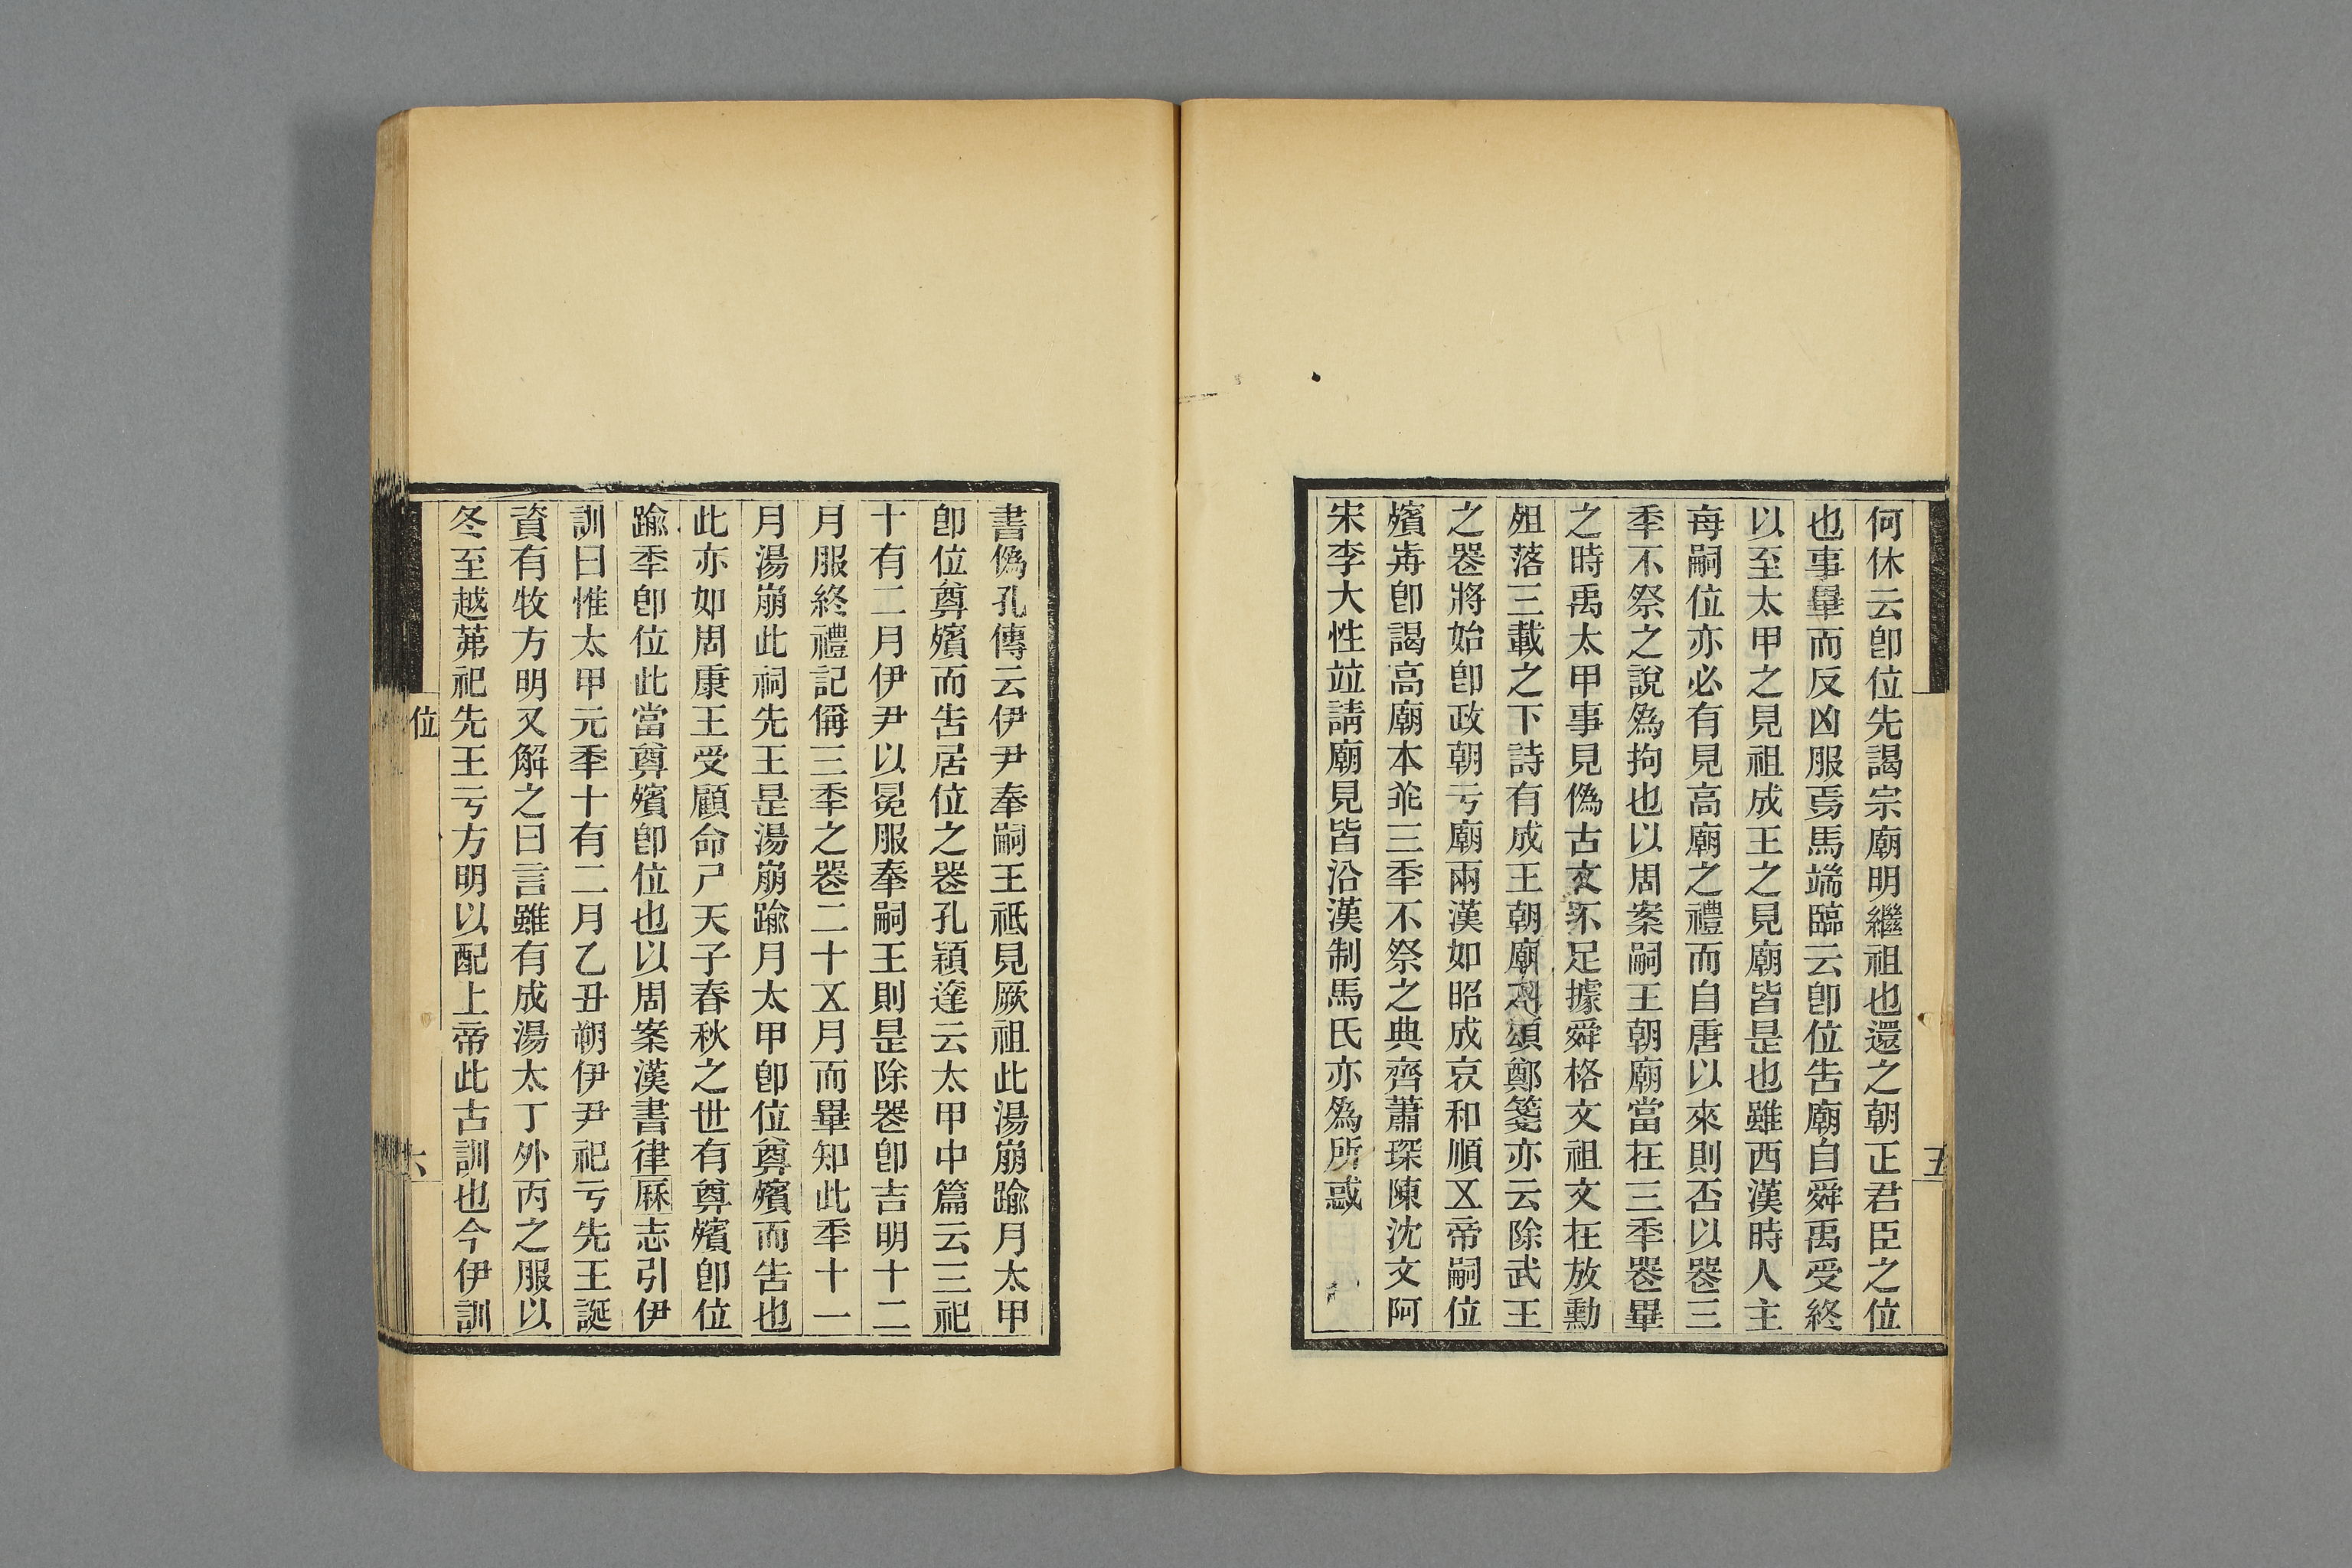 何休云卽位先謁宗廟明繼祖也還之朝正君臣之位
也事畢而反凶服焉馬端臨云卽位告廟自舜禹受終
以至太甲之見祖成王之見廟皆是也雖西漢時人主
每嗣位亦必有見高廟之禮而自唐以來則否以器三
秊不祭之說爲拘也以周案嗣王朝廟當在三秊器畢
之時禹太甲事見僞古文不足據舜格文祖文在放勳
殂落三載之下詩有成王朝廟之頌鄭箋亦云除武王
之器將始卽政朝亏廟兩漢如昭成哀和順㐅帝嗣位
殯歬卽謁高廟本非三秊不祭之典齊蕭琛陳沈文阿
宋李大性竝請廟見皆沿漢制馬氏亦爲所惑
五
書僞孔傳云伊尹奉嗣王祗見厥祖此湯崩踰月太甲
卽位尊殯而告居位之器孔穎達云太甲中篇云三祀
十有二月伊尹以冕服奉嗣王則是除器卽吉明十二
月服終禮記偁三秊之器二十㐅月而畢知此秊十一
月湯崩此祠先王是湯崩踰月太甲卽位尊殯而告也
此亦如周康王受顧命尸天子春秋之世有尊殯卽位
踰秊卽位此當尊殯卽位也以周案漢書律厤志引伊
訓曰惟太甲元秊十有二月乙丑朔伊尹祀亏先王誕
資有牧方明又解之曰言雖有成湯太丁外丙之服以
冬至越茀祀先王亏方明以配上帝此古訓也今伊訓
位
六